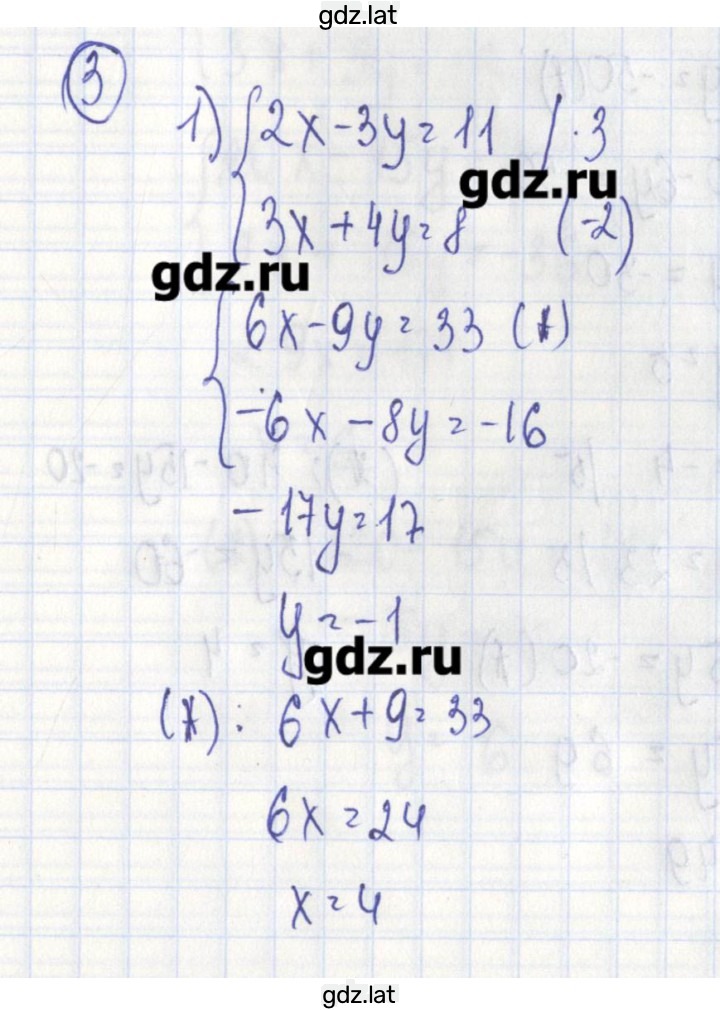 gdz.lat
3
1) { 2x - 3y = 11 / · 3
gdz.ru
3x + 4y = 8 (-2)
gdz.ru
{ 6x - 9y = 33 (*)
-6x - 8y = -16
-17y = 17
y = -1
gdz.ru
(*): 6x + 9 = 33
6x = 24
x = 4
gdz.lat